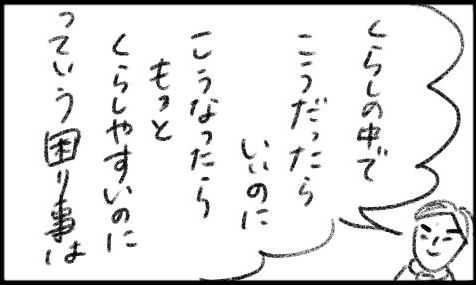 くらしの中で
こうだったら
いいのに
こうなったら
もっと
くらしやすいのに
っていう困り事は